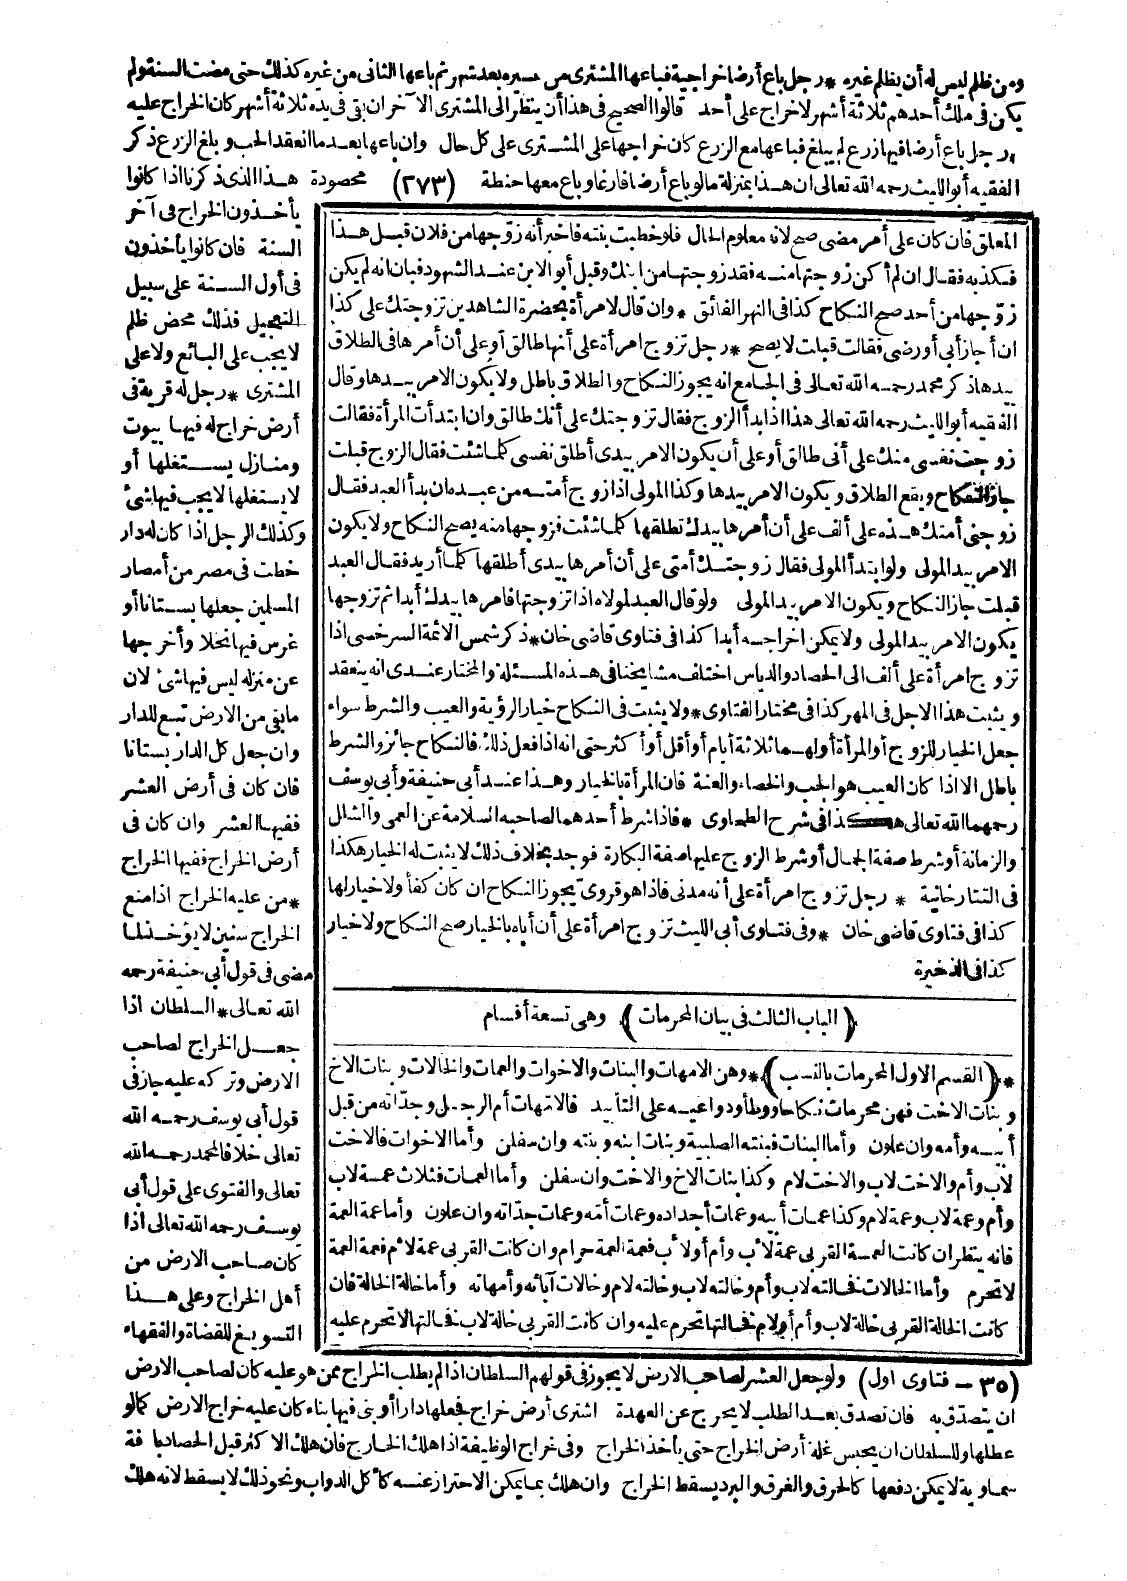 ومن ظلم ليس له أن يظلم غيره * رجل باع أرضا خراجية فباعها المشترى من غيره بعد شهر ثم باعها الثانى من غيره كذلك حتى مضت السنة ولم
يكن فى ملك أحدهم ثلاثة أشهر لا خراج على أحد قالوا الصحيح فى هذا أن ينظر الى المشترى الآخر ان بقى فى يده ثلاثة أشهر كان الخراج عليه
* رجل باع أرضا فيها زرع لم يبلغ فباعها مع الزرع كان خراجها على المشترى على كل حال وان باعها بعد ما انعقد الحب وبلغ الزرع ذكر
الفقيه أبو الليث رحمه الله تعالى ان هذا بمنزلة ما لو باع أرضا فارغا وباع معها حنطة (٢٧٣) محصودة هذا الذى ذكرنا اذا كانوا
يأخذون الخراج فى آخر
السنة فان كانوا يأخذون
فى أول السنة على سبيل
التعجيل فذلك محض ظلم
لا يجب على البائع ولا على
المشترى * رجل له قرية فى
أرض خراج له فيها بيوت
ومنازل يستغلها أو
لا يستغلها لا يجب فيها شئ
وكذلك الرجل اذا كان له دار
خطت فى مصر من أمصار
المسلمين جعلها بستانا أو
غرس فيها نخلا وأخرجها
عن منزله ليس فيها شئ لان
ما بقى من الارض تبع للدار
وان جعل كل الدار بستانا
فان كان فى أرض العشر
ففيها العشر وان كان فى
أرض الخراج ففيها الخراج
* من عليه الخراج اذا منع
الخراج سنين لا يؤخذ لما
مضى فى قول أبى حنيفة رحمه
الله تعالى * السلطان اذا
جعل الخراج لصاحب
الارض وتركه عليه جاز فى
قول أبى يوسف رحمه الله
تعالى خلافا لمحمد رحمه الله
تعالى والفتوى على قول أبى
يوسف رحمه الله تعالى اذا
كان صاحب الارض من
أهل الخراج وعلى هذا
التسويغ للقضاة والفقهاء
المعلق فان كان على أمر مضى صح لانه معلوم الحال فلو خطبت بنته فاخبر أنه زوجها من فلان قبل هذا
فكذبه فقال ان لم أكن زوجتها منه فقد زوجتها من ابنك وقبل أبو الابن عند الشهود فبان انه لم يكن
زوجها من أحد صح النكاح كذا فى النهر الفائق * وان قال لامرأة بحضرة الشاهدين تزوجتك على كذا
ان أجاز أبى أو رضى فقالت قبلت لا يصح * رجل تزوج امرأة على أنها طالق أو على أن أمرها فى الطلاق
بيدها ذكر محمد رحمه الله تعالى فى الجامع انه يجوز النكاح والطلاق باطل ولا يكون الامر بيدها وقال
الفقيه أبو الليث رحمه الله تعالى هذا اذا بدأ الزوج فقال تزوجتك على أنك طالق وان ابتدأت المرأة فقالت
زوجت نفسى منك على أنى طالق أو على أن يكون الامر بيدى أطلق نفسى كلما شئت فقال الزوج قبلت
جاز النكاح ويقع الطلاق ويكون الامر بيدها وكذا المولى اذا زوج أمته من عبده ان بدأ العبد فقال
زوجنى أمتك هذه على ألف على أن أمرها بيدك تطلقها كلما شئت فزوجها منه يصح النكاح ولا يكون
الامر بيد المولى ولو ابتدأ المولى فقال زوجتك أمتى على أن أمرها بيدى أطلقها كلما أريد فقال العبد
قبلت جاز النكاح ويكون الامر بيد المولى ولو قال العبد لمولاه اذا تزوجتها فامرها بيدك أبدا ثم تزوجها
يكون الامر بيد المولى ولا يمكن اخراجه أبدا كذا فى فتاوى قاضى خان * ذكر شمس الائمة السرخسى اذا
تزوج امرأة على ألف الى الحصاد والدياس اختلف مشايخنا فى هذه المسئلة والمختار عندى انه ينعقد
ويثبت هذا الاجل فى المهر كذا فى مختار الفتاوى * ولا يثبت فى النكاح خيار الرؤية والعيب والشرط سواء
جعل الخيار للزوج أو المرأة أو لهما ثلاثة أيام أو أقل أو أكثر حتى انه اذا فعل ذلك فالنكاح جائز والشرط
باطل الا اذا كان العيب هو الجب والخصاء والعنة فان المرأة بالخيار وهذا عند أبى حنيفة وأبى يوسف
رحمهما الله تعالى هكذا فى شرح الطحاوى * فاذا شرط أحدهما لصاحبه السلامة عن العمى والشلل
والزمانة أو شرط صفة الجمال أو شرط الزوج عليها صفة البكارة فوجد بخلاف ذلك لا يثبت له الخيار هكذا
فى التتارخانية * رجل تزوج امرأة على أنه مدنى فاذا هو قروى يجوز النكاح ان كان كفأ ولا خيار لها
كذا فى فتاوى قاضى خان * وفى فتاوى أبى الليث تزوج امرأة على أن أباه بالخيار صح النكاح ولا خيار
كذا فى الذخيرة
﴿ الباب الثالث فى بيان المحرمات ﴾ وهى تسعة أقسام
* ﴿ القسم الاول المحرمات بالنسب ﴾ * وهن الامهات والبنات والاخوات والعمات والخالات وبنات الاخ
وبنات الاخت فهن محرمات نكاحا ووطأ ودواعيه على التأبيد فالامهات أم الرجل وجداته من قبل
أبيه وأمه وان علون وأما البنات فبنته الصلبية وبنات ابنه وبنته وان سفلن وأما الاخوات فالاخت
لاب وأم والاخت لاب والاخت لام وكذا بنات الاخ والاخت وان سفلن وأما العمات فثلاث عمة لاب
وأم وعمة لاب وعمة لام وكذا عمات أبيه وعمات أجداده وعمات أمه وعمات جداته وان علون وأما عمة العمة
فانه ينظر ان كانت العمة القربى عمة لاب وأم أو لاب فعمة العمة حرام وان كانت القربى عمة لام فعمة العمة
لا تحرم وأما الخالات فخالته لاب وأم وخالته لاب وخالته لام وخالات آبائه وأمهاته وأما خالة الخالة فان
كانت الخالة القربى خالة لاب وأم أو لام فخالتها تحرم عليه وان كانت القربى خالة لاب فخالتها لا تحرم عليه
(٣٥ - فتاوى اول) ولو جعل العشر لصاحب الارض لا يجوز فى قولهم السلطان اذا لم يطلب الخراج ممن هو عليه كان لصاحب الارض
ان يتصدق به فان تصدق بعد الطلب لا يخرج عن العهدة اشترى أرض خراج فجعلها دارا أو بنى فيها بناء كان عليه خراج الارض كما لو
عطلها وللسلطان ان يحبس غلة أرض الخراج حتى يأخذ الخراج وفى خراج الوظيفة اذا هلك الخارج فان هلك الاكثر قبل الحصاد بآفة
سماوية لا يمكن دفعها كالحرق والغرق والبرد يسقط الخراج وان هلك بما يمكن الاحتراز عنه كأكل الدواب ونحو ذلك لا يسقط لانه هلك